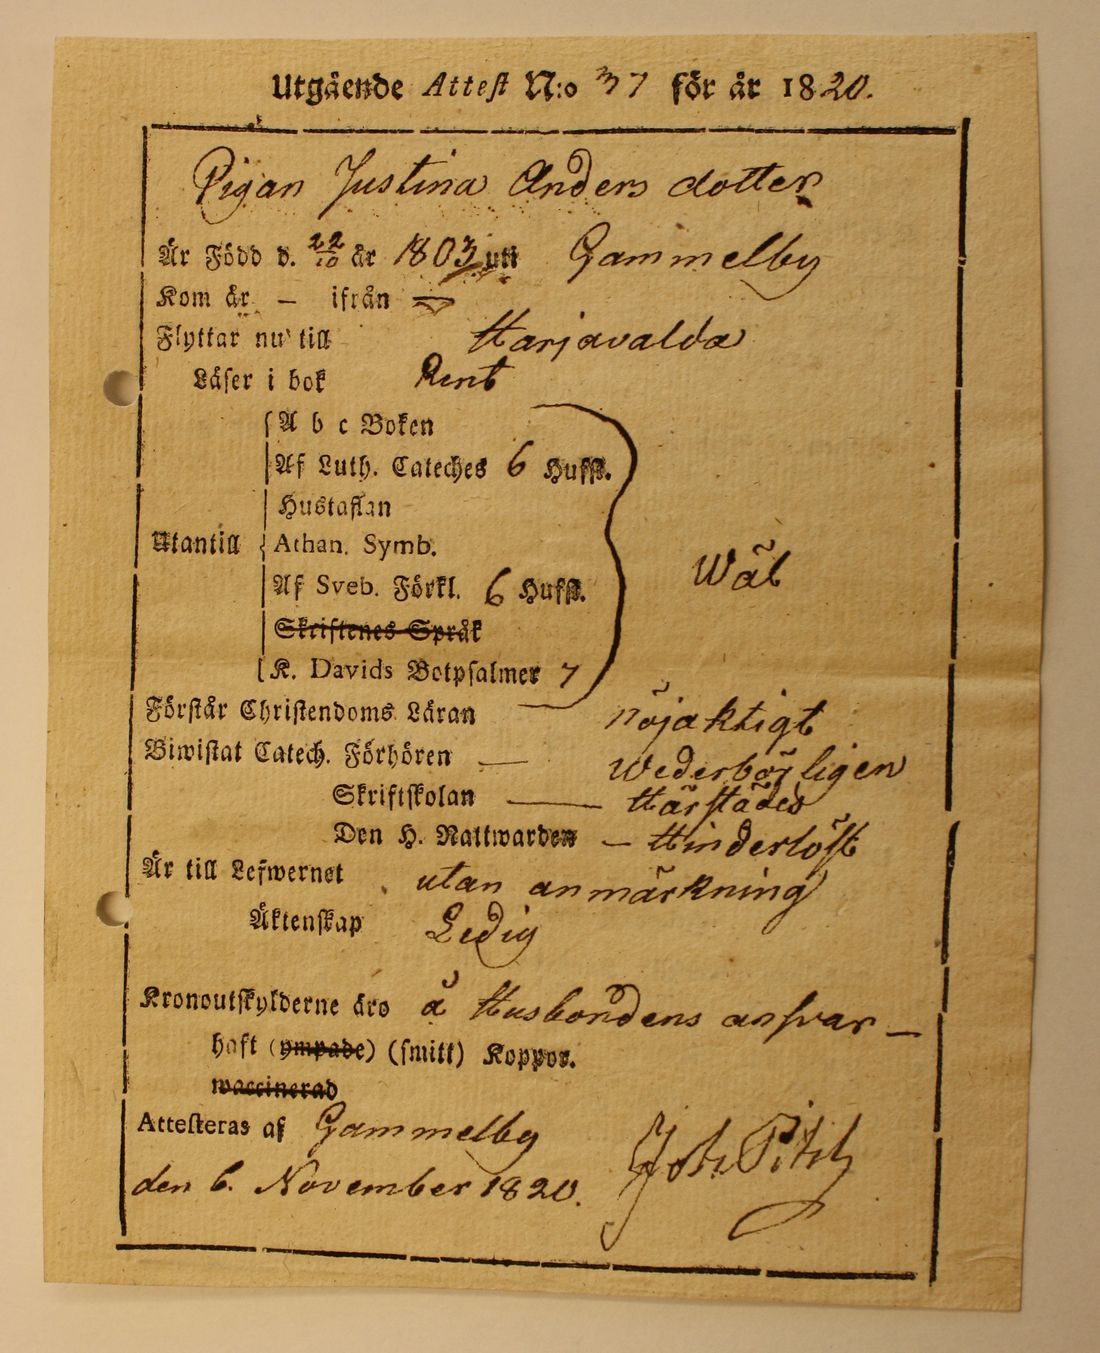 Utgående Attest N:o 37 för år 1820.
Pigan Justina Anders dotter
Är Född d. 22/10 år 1803 uti Gammelby
Kom år – ifrån
Flyttar nu till Harjavalda
Läser i bok Rent
A b c Boken
Af Luth. Cateches 6 Hufst.
Hustaflan
Utantill Athan. Symb. Wäl
Af Sveb. Förkl. 6 Hufst.
Skriftenes Språk
K. Davids Botpsalmer 7
Förstår Christendoms Läran nöjaktigt
Biwistat Catech. Förhören — wederbörligen
Skriftskolan — Härstädes
Den H. Nattwarden — Hinderlöst
Är till Lefwernet utan anmärkning
Äktenskap Ledig
Kronoutskylderne äro å Husbondens ansvar —
haft (ympade) (smitt) Koppor.
waccinerad
Attesteras af Gammelby
den 6. November 1820. Joh